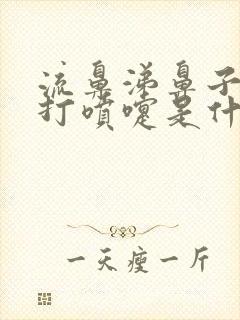 流鼻涕鼻子
打喷嚏是什
一天瘦一斤